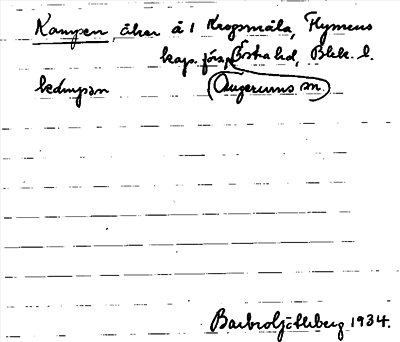 Kampen, åker å 1 Kropsmåla, Flymens
kap. förs, Östra hd, Blek. l.
kámpən (Augerums sn.)
Barbro Ljöthberg 1934.